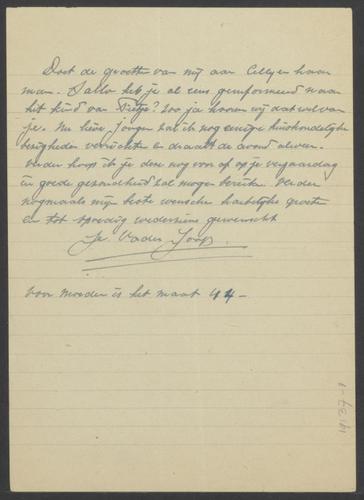 Doet de groeten van mij aan Cilly en haar
man. Sallo heb je al eens geinformeerd naar
het kind van Fietje? zoo ja hooren wij dat wel van
je. Nu beste jongen zal ik nog eenige huishoudelijke
bezigheden verrichten en draait de avond alweer.
Verder hoop ik je deze nog voor of op je verjaardag
in goede gezondheid zal mogen bereiken. Verder
nogmaals mijn beste wenschen hartelijke groeten
en tot spoedig wederziens gewenscht
Je Vader Joop.
Voor moeder is het maat 44 -
14137-9